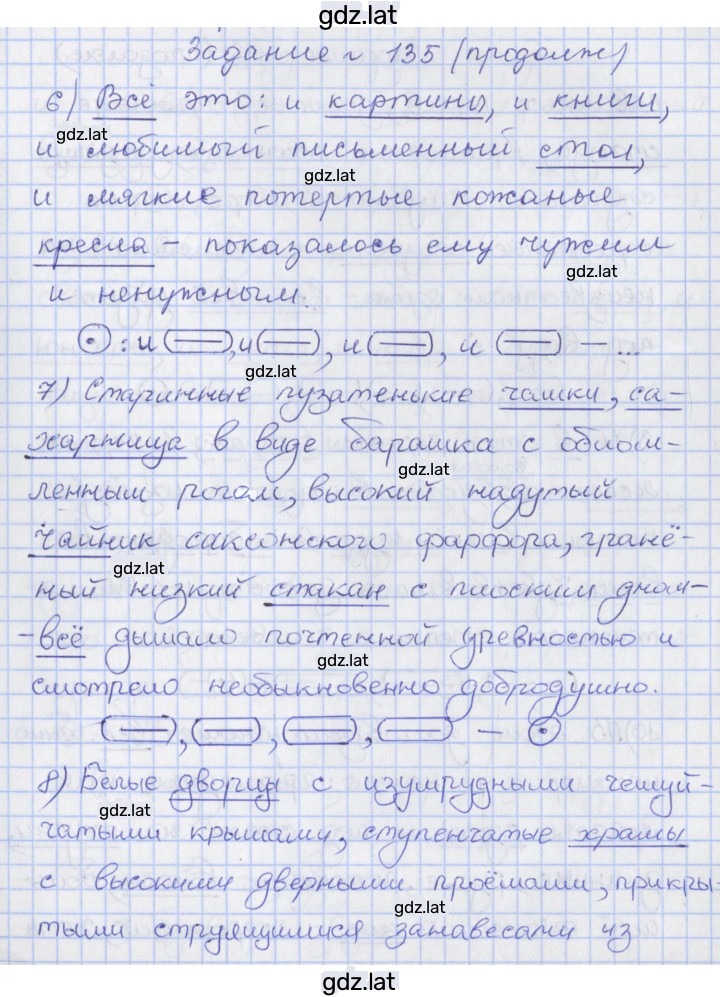 gdz.lat
Задание № 135 (продолж)
6) Всё это: и картины, и книги,
gdz.lat
и любимый письменный стол,
gdz.lat
и мягкие потертые кожаные
кресла – показалось ему чужим
gdz.lat
и ненужным.
⊙: и ⊂=⊃, и ⊂=⊃, и ⊂=⊃, и ⊂=⊃ – ...
gdz.lat
7) Старинные пузатенькие чашки, са-
харница в виде барашка с облом-
gdz.lat
ленным рогом, высокий надутый
чайник саксонского фарфора, гранё-
gdz.lat
ный низкий стакан с плоским дном–
–всё дышало почтенной древностью и
gdz.lat
смотрело необыкновенно добродушно.
⊂=⊃, ⊂=⊃, ⊂=⊃, ⊂=⊃ – ⊙
8) Белые дворцы с изумрудными чешуй-
gdz.lat
чатыми крышами, ступенчатые храмы
с высокими дверными проёмами, прикры-
gdz.lat
тыми струящимися занавесами из
gdz.lat